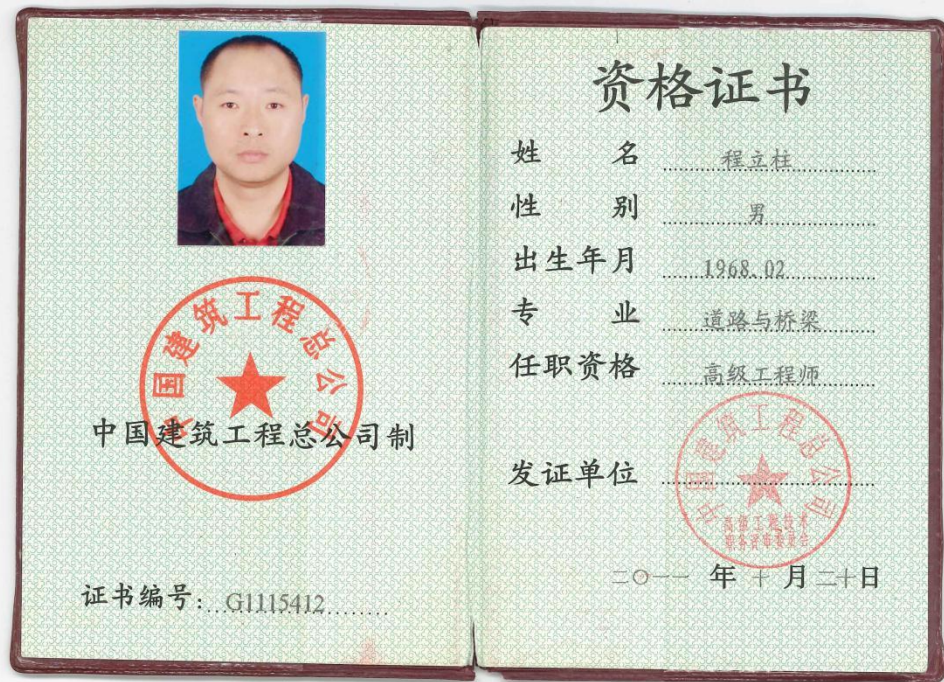 中国建筑工程总公司
中国建筑工程总公司制
证书编号：G1115412
资格证书
姓名 程立柱
性别 男
出生年月 1968.02
专业 道路与桥梁
任职资格 高级工程师
发证单位
中国建筑工程总公司
高级工程技术
职务评审委员会
二〇一一年十月二十日